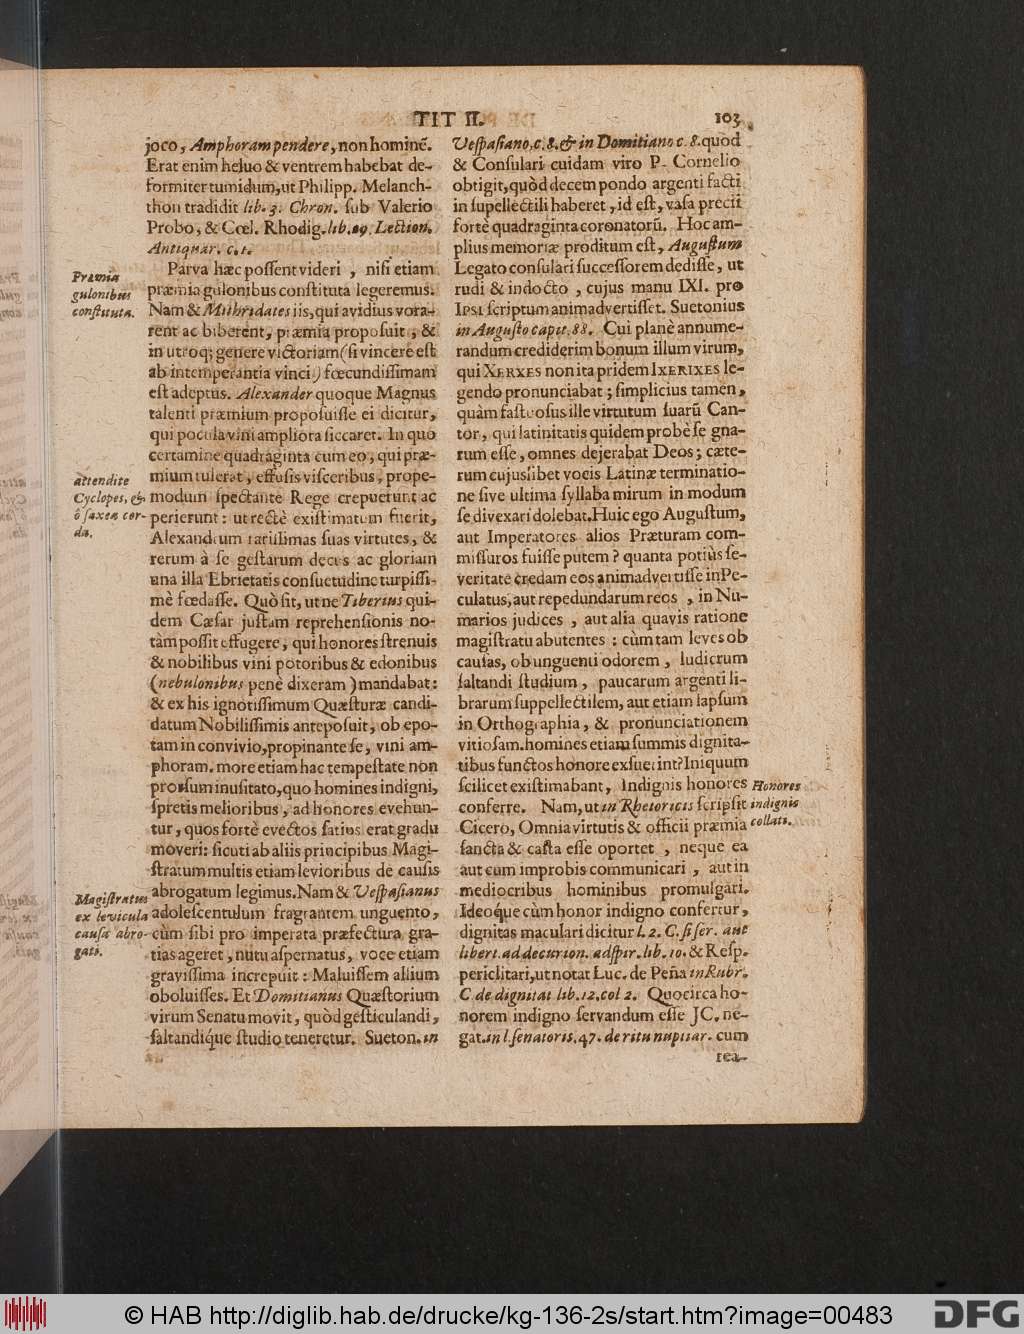 TIT II. 103
joco, Amphoram pendere, non hominē.
Erat enim heluo & ventrem habebat de-
formiter tumidum, ut Philipp. Melanch-
thon tradidit lib. 3. Chron. sub Valerio
Probo, & Cœl. Rhodig. lib. 29. Lection.
Antiquar. c. 1.
Parva hæc possent videri, nisi etiam
præmia gulonibus constituta legeremus.
Nam & Mithridates iis, qui avidius vora-
rent ac biberent, præmia proposuit, &
in utroq; genere victoriam (si vincere est
ab intemperantia vinci) fœcundissimam
est adeptus. Alexander quoque Magnus
talenti præmium proposuisse ei dicitur,
qui pocula vini ampliora siccaret. In quo
certamine quadraginta cum eo, qui præ-
mium tulerat, effusis visceribus, prope-
modum spectante Rege crepuerunt ac
perierunt: ut rectè existimatum fuerit,
Alexandrum rarissimas suas virtutes, &
rerum à se gestarum decus ac gloriam
una illa Ebrietatis consuetudine turpissi-
mè fœdasse. Quò fit, ut ne Tiberius qui-
dem Cæsar justam reprehensionis no-
tam possit effugere, qui honores strenuis
& nobilibus vini potoribus & edonibus
(nebulonibus penè dixeram) mandabat:
& ex his ignotissimum Quæsturæ candi-
datum Nobilissimis anteposuit, ob epo-
tam in convivio, propinante se, vini am-
phoram. more etiam hac tempestate non
prorsum inusitato, quo homines indigni,
spretis melioribus, ad honores evehun-
tur, quos fortè evectos satius erat gradu
moveri: sicuti ab aliis principibus Magi-
stratum multis etiam levioribus de causis
abrogatum legimus. Nam & Vespasianus
adolescentulum fragrantem unguento,
cùm sibi pro imperata præfectura gra-
tias ageret, nutu aspernatus, voce etiam
gravissima increpuit: Maluissem allium
oboluisses. Et Domitianus Quæstorium
virum Senatu movit, quòd gesticulandi,
saltandíque studio teneretur. Sueton. in
Præmia
gulonibus
constituta.
attendite
Cyclopes, &
ô saxea cor-
da.
Magistratus
ex levicula
causa abro-
gati.
Vespasiano. c. 8. & in Domitiano c. 8. quod
& Consulari cuidam viro P. Cornelio
obtigit, quòd decem pondo argenti facti
in supellectili haberet, id est, vasa precii
fortè quadraginta coronatorū. Hoc am-
plius memoriæ proditum est, Augustum
Legato consulari successorem dedisse, ut
rudi & indocto, cujus manu IXI. pro
IPSI scriptum animadvertisset. Suetonius
in Augusto capit. 88. Cui planè annume-
randum crediderim bonum illum virum,
qui XERXES non ita pridem IXERIXES le-
gendo pronunciabat; simplicius tamen,
quàm fastuosus ille virtutum suarū Can-
tor, qui latinitatis quidem probè se gna-
rum esse, omnes dejerabat Deos; cæte-
rum cujuslibet vocis Latinæ terminatio-
ne sive ultima syllaba mirum in modum
se divexari dolebat. Huic ego Augustum,
aut Imperatores alios Præturam com-
missuros fuisse putem? quanta potiùs se-
veritate credam eos animadvertisse in Pe-
culatus, aut repedundarum reos, in Nu-
marios judices, aut alia quavis ratione
magistratu abutentes: cùm tam leves ob
causas, ob unguenti odorem, ludicrum
saltandi studium, paucarum argenti li-
brarum suppellectilem, aut etiam lapsum
in Orthographia, & pronunciationem
vitiosam. homines etiam summis dignita-
tibus functos honore exsuerint? Iniquum
scilicet existimabant, Indignis honores
conferre. Nam, ut in Rhetoricis scripsit
Cicero, Omnia virtutis & officii præmia
sancta & casta esse oportet, neque ea
aut cum improbis communicari, aut in
mediocribus hominibus promulgari.
Ideóque cùm honor indigno confertur,
dignitas maculari dicitur l. 2. C. si ser. aut
libert. ad decurion. adspir. lib. 10. & Resp.
periclitari, ut notat Luc. de Peña in Rubr.
C. de dignitat lib. 12. col 2. Quocirca ho-
norem indigno servandum esse JC. ne-
gat. in l. senatoris. 47. de ritu nuptiar. cum
rea-
Honores
indignis
collati.
© HAB http://diglib.hab.de/drucke/kg-136-2s/start.htm?image=00483
DFG